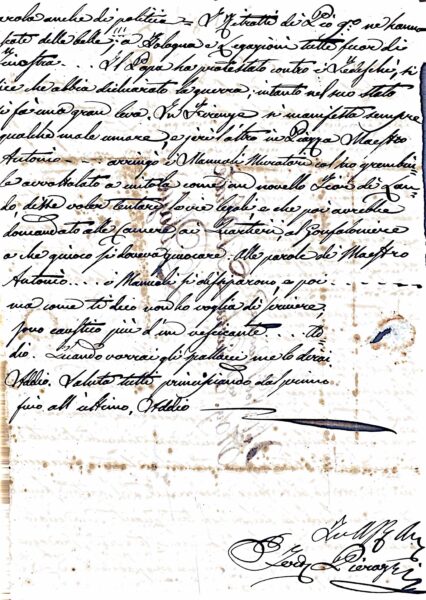 parola anche di politica = I Ritratti di Pio 9.º ne hanno
fatte delle belle; a Bologna e Legazioni tutti fuor di
finestra . . . Il Papa ha protestato contro i Tedeschi, si
dice che abbia dichiarato la guerra, intanto nel suo stato
si fà una gran leva. In Firenze si manifesta sempre
qualche male umore, e jeri l'altro in Piazza Maestro
Antonio - - - - arringò i Manuali Muratori col suo grembiu-
le arrotolato a mitola come un novello
do disse voler tentare le vie legali e che poi avrebbe
domandato alle Camere ai quartieri, al Gonfaloniere
a che giuoco si doveva giuocare. Alle parole di Maestro
Antonio . . . . i Manuali si dissiparono, e poi - - -
ma come ti dico non ho voglia di scrivere,
sono caustico più d'un vescicante . . . Ad-
dio. Quando vorrai gli me lo dirai
Addio. Saluta tutti principiando dal primo
fino all'ultimo, Addio
Tuo Aff.
Ferd